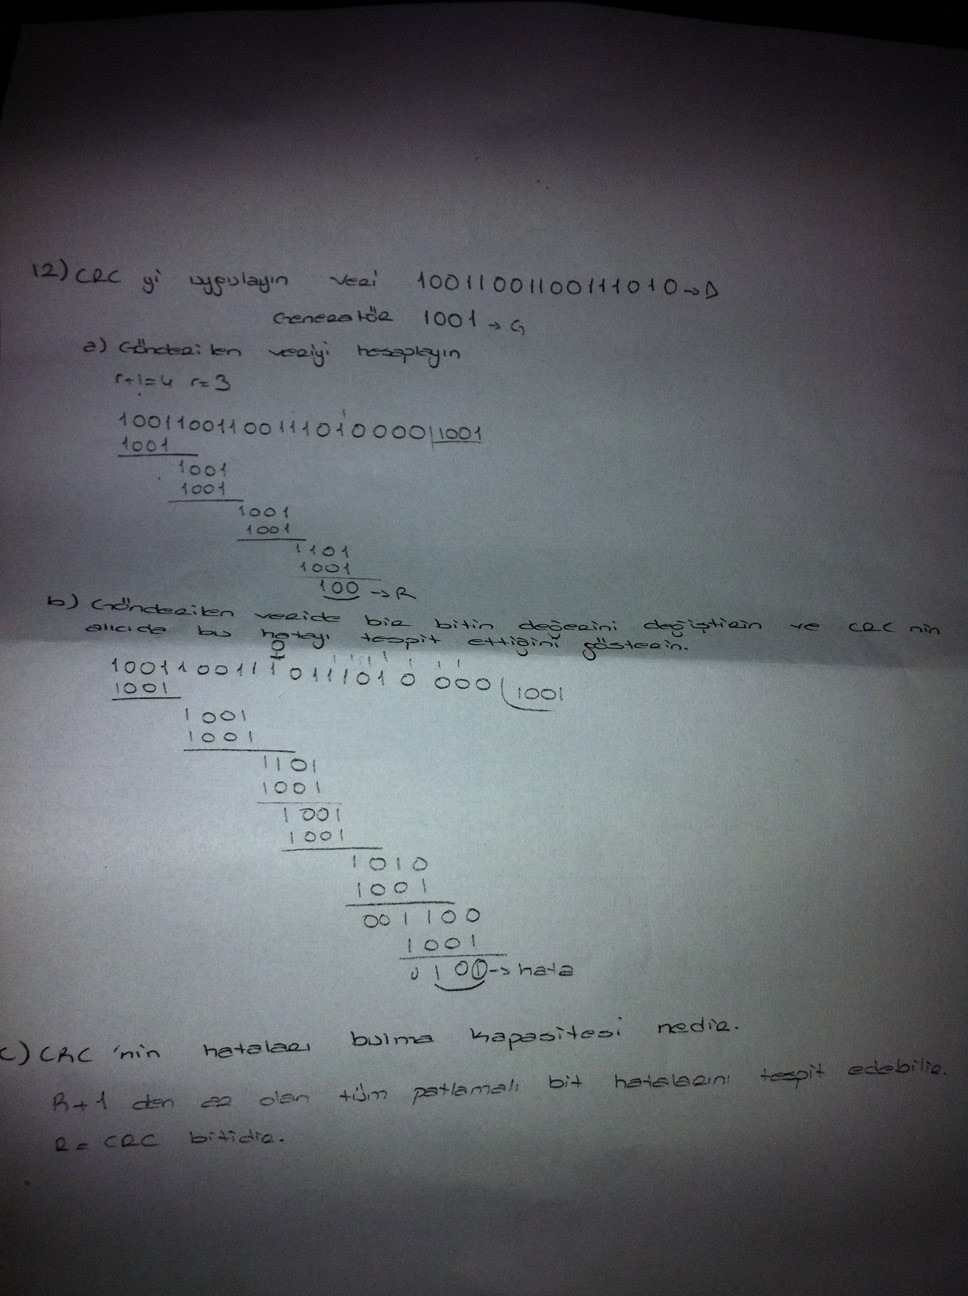 12) CRC yi uygulayın veri 100110011001110 10 → D
Generatör 1001 → G
a) Gönderilen veriyi hesaplayın
r+1=4 r=3
1001100110011101 0000 1001
1001
1001
1001
1001
1001
1101
1001
100 → R
b) Gönderilen veride bir bitin değerini değiştirin ve CRC nin
alıcıda bu hatayı tespit ettiğini gösterin.
0
1001100111 1 0111010 000 1001
1001
1001
1001
1101
1001
1001
1001
1010
1001
001100
1001
0100 → hata
c) CRC 'nin hataları bulma kapasitesi nedir.
R+1 den az olan tüm patlamalı bit hatalarını tespit edebilir.
R = CRC bitidir.